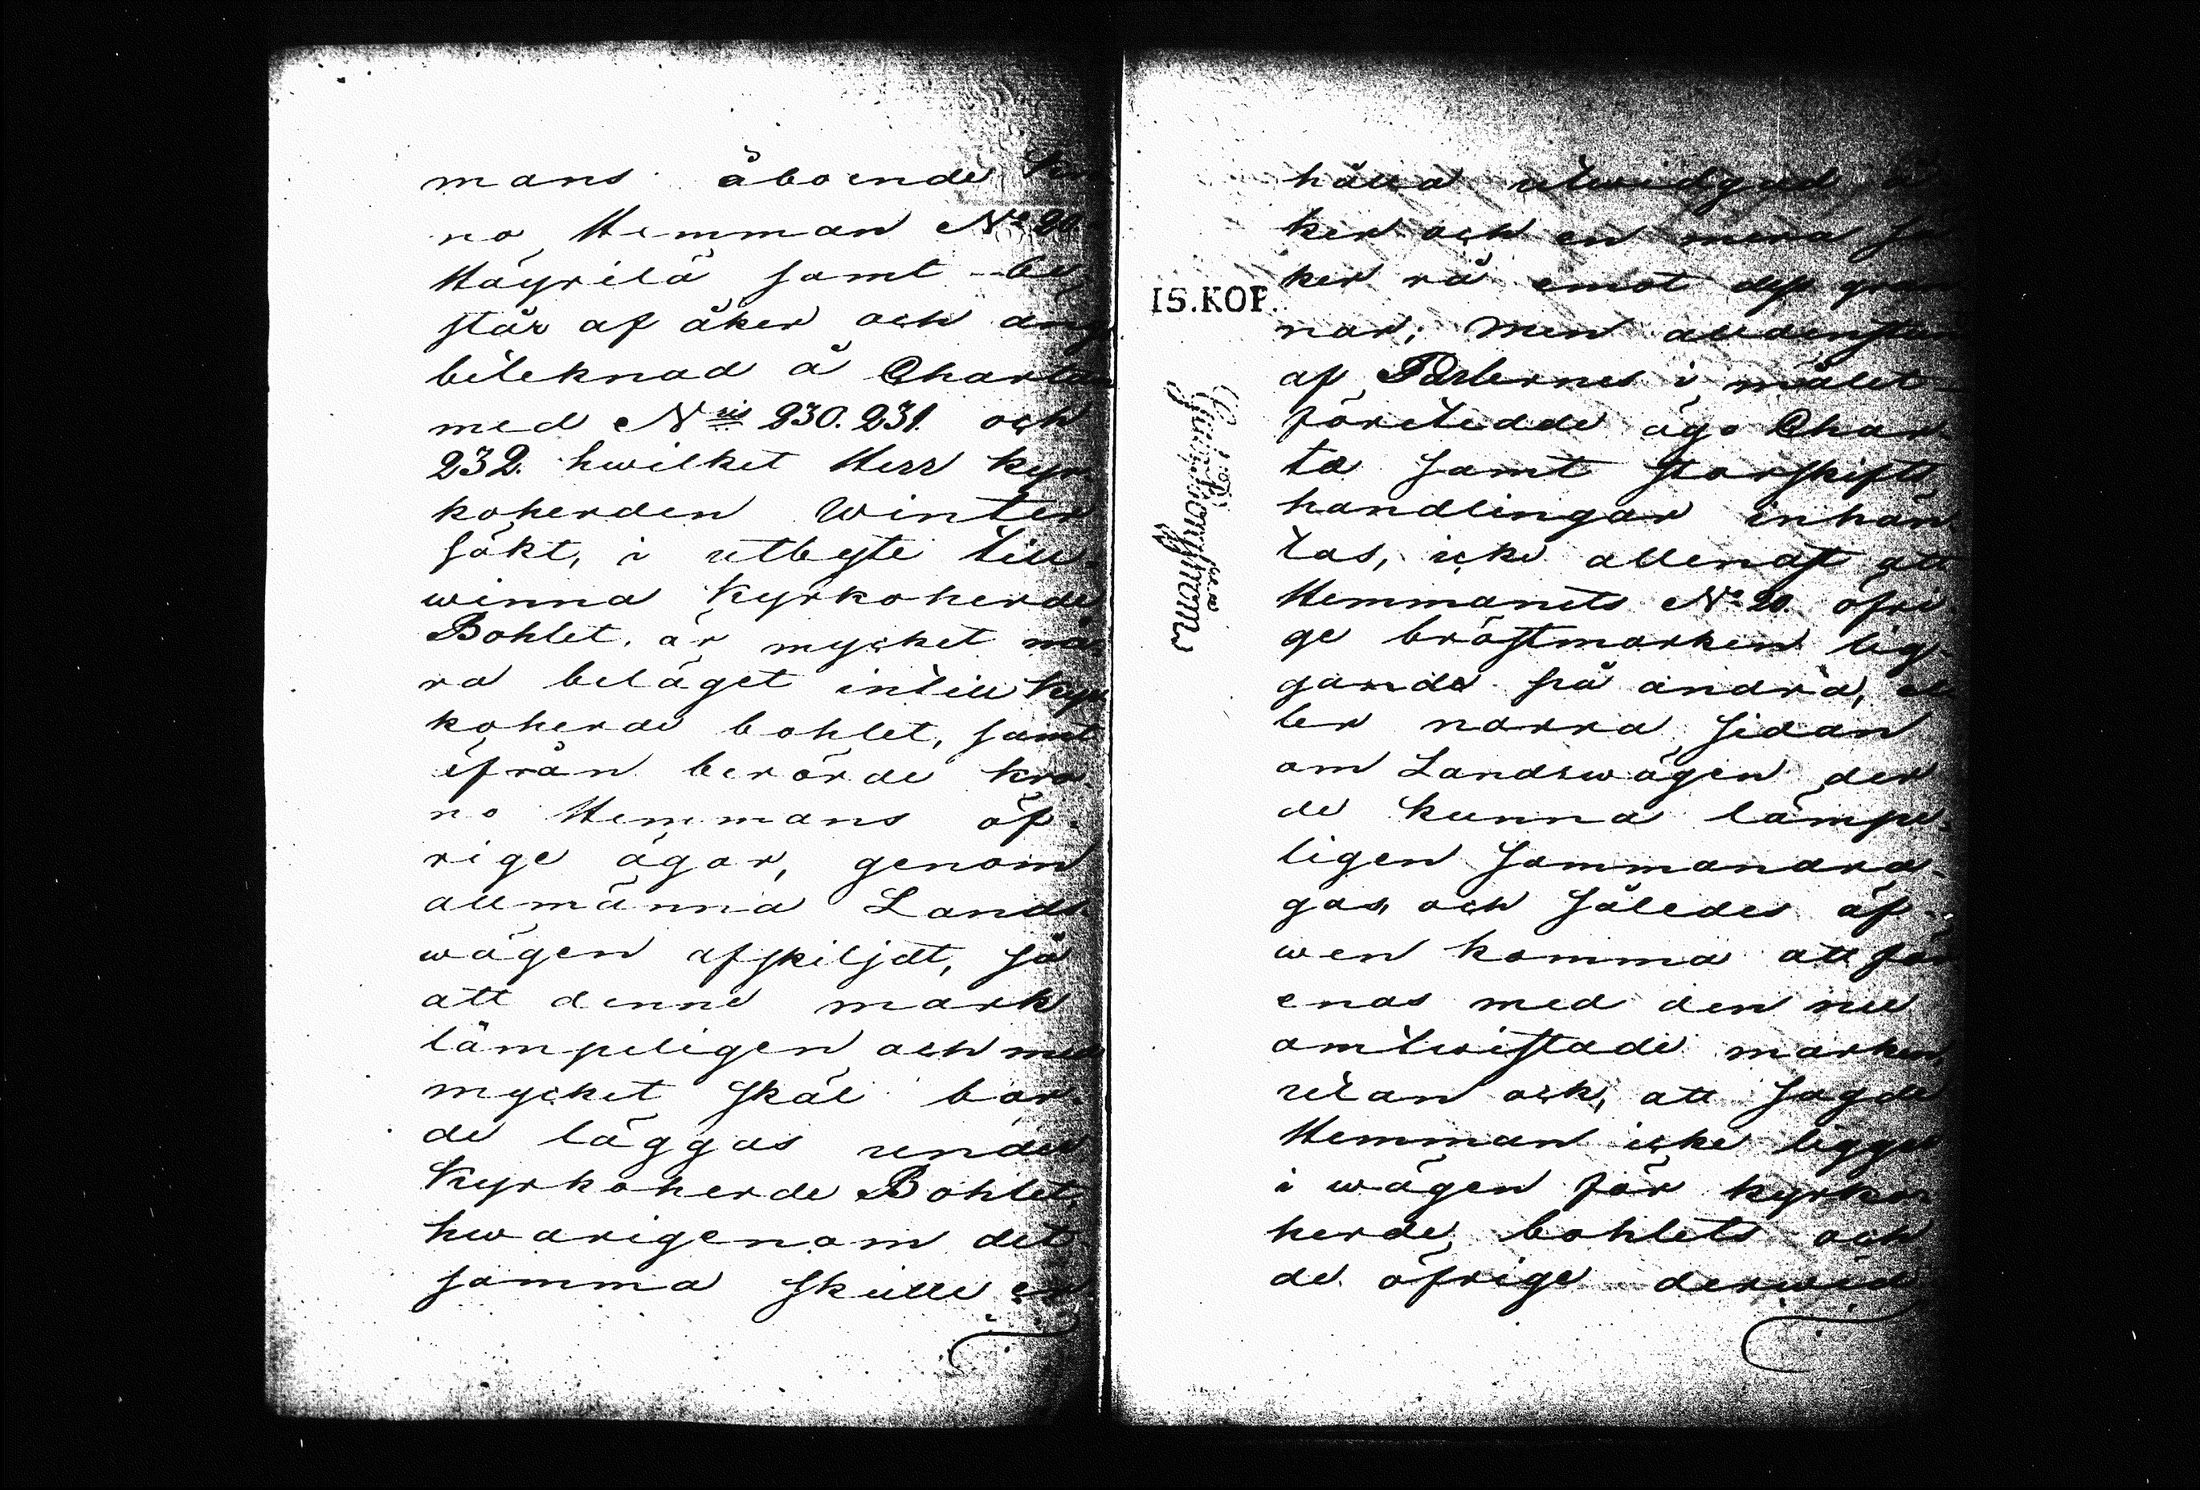 mans åboende Kro
no Hemman No 20.
Häyrilä samt be
står af åker och äng
beteknad å Chartan
med N ris 230. 231. och
232. hwilket Herr Kyr
koherden Winter
sökt, i utbyte till
winna Kyrkoherde
Bohlet, är mycket nä
ra beläget intill Kyr
koherde bohlet, samt
ifrån berörde kro
no Hemmans öf
rige ägor, genom
allmänna Lands
wägen afskiljdt, så
att denne mark
lämpeligen och med
mycket skäl bor
de läggas under
Kyrkoherde Bohlet,
hwarigenom det
samma skulle er
hålla utwidgad å
ker och en mera sä
ker rå emot dess gran
nar; Men alldenstund
af Parternes i målet
företedde ägo Char
ta samt storskifts
handlingar inhäm
tas, icke allenast att
Hemmanets No 20. öfri
ge bröstmarken lig
gande på andra, el
ler norra sidan
om Landswägen der
de kunna lämpe
ligen sammandra
gas, och således äf
wen komma att för
enas med den nu
omtwistade marken,
utan ock, att sagde
Hemman icke ligger
i wägen för kyrko
herde bohlets och
de öfrige derwid
15.KOP.